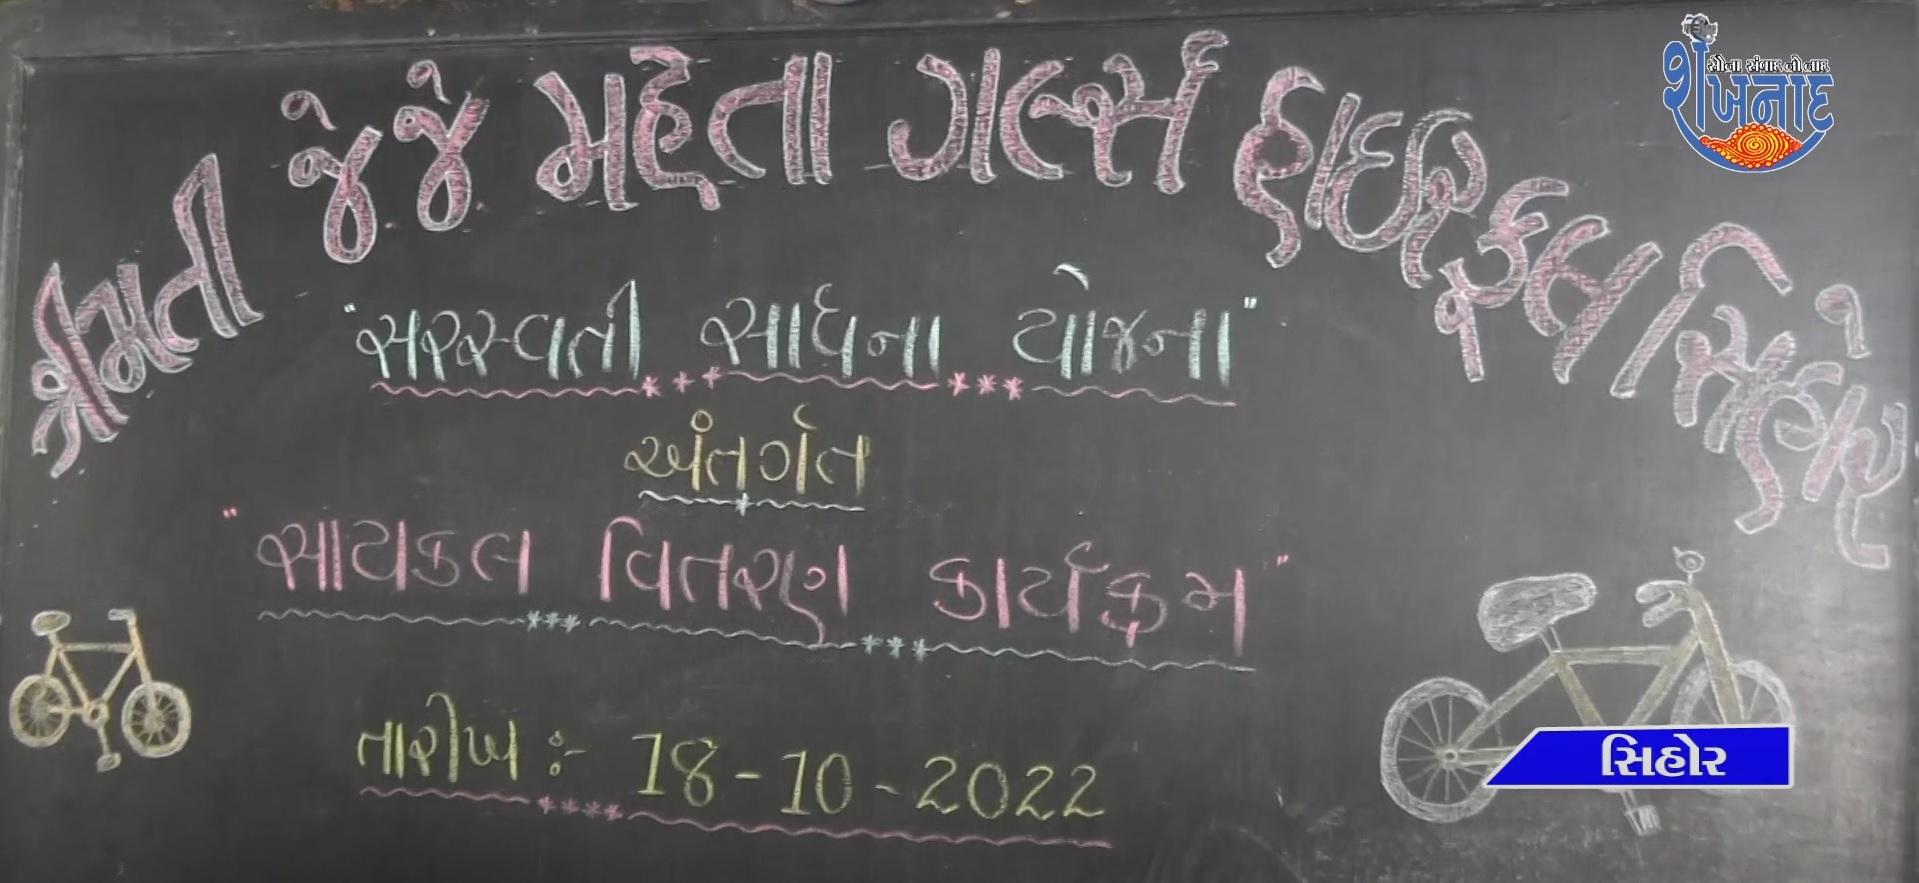 શ્રીમતી જે જે મહેતા ગર્લ્સ હાઇસ્કૂલ સિહોર
"સરસ્વતી સાધના યોજના"
અંતર્ગત
"સાયકલ વિતરણ કાર્યક્રમ"
તારીખ :- 18-10-2022
સૌના સંવાદની નાદ
શંખનાદ
સિહોર